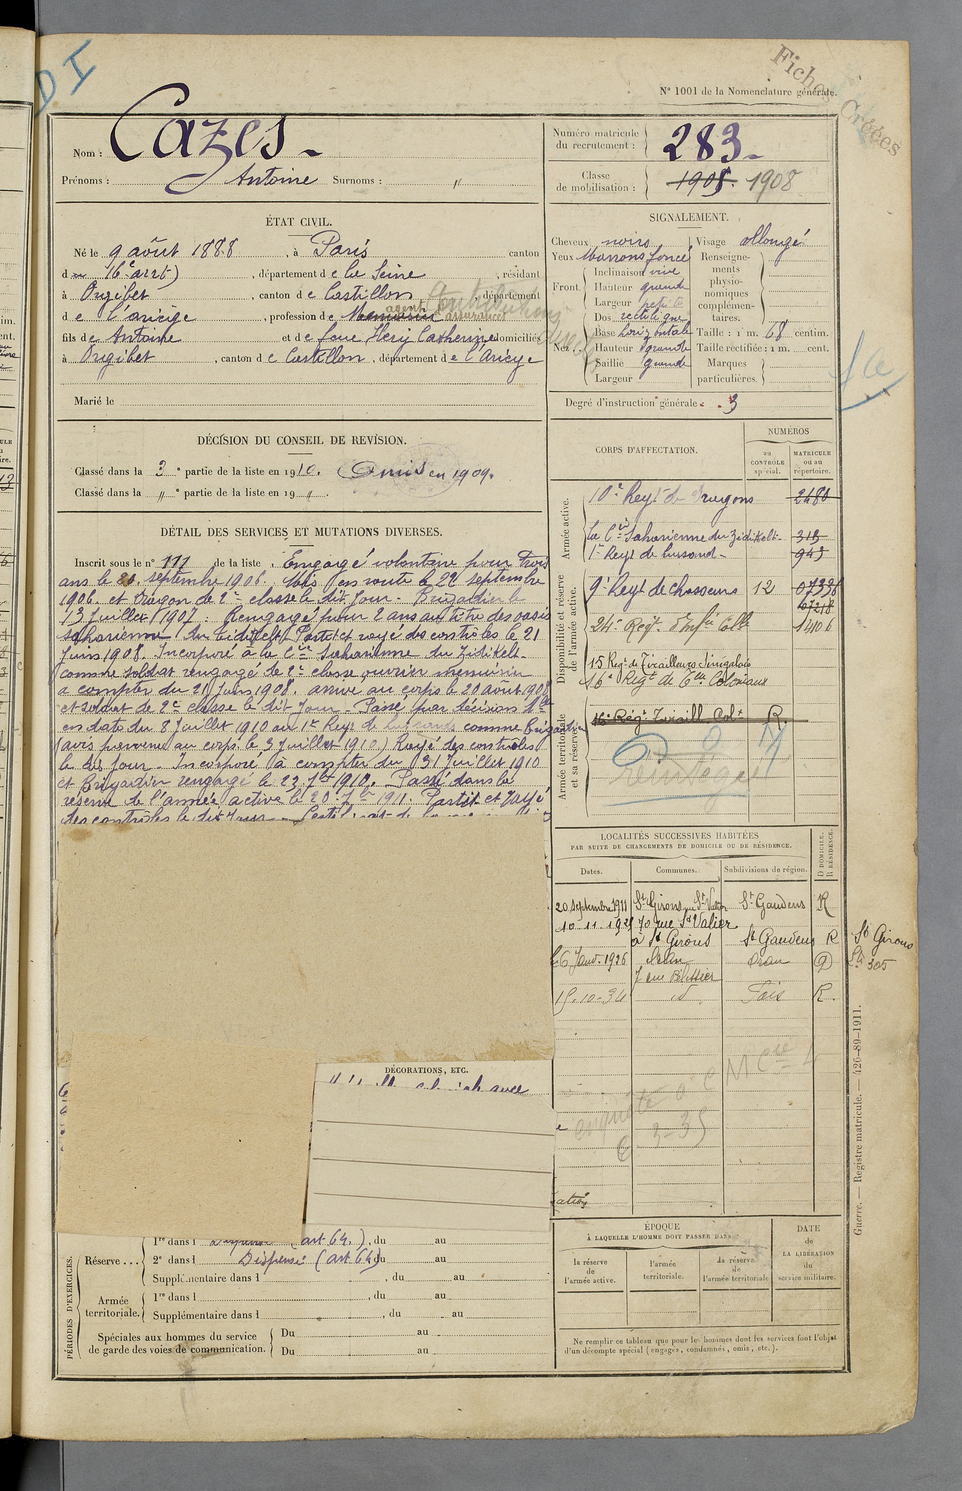 D I
Fiches Créées
N° 1001 de la Nomenclature générale.
Nom : Cazes
Prénoms : Antoine Surnoms : "
Numéro matricule du recrutement : 283
Classe de mobilisation : 1905. 1908
ÉTAT CIVIL.
Né le 9 août 1888, à Paris canton
d 16e arrt), département de la Seine, résidant
à Orgibet, canton de Castillon, département
de l'ariège, profession de Menuisier agent assurances
fils de Antoine et de feue Héry Catherine domiciliés
à Orgibet, canton de Castillon, département de l'Ariège
Marié le
SIGNALEMENT.
Cheveux noirs Visage allongé
Yeux Marrons foncé
Front. Inclinaison vive
Hauteur grande
Largeur petite
Nez. Dos rectiligne
Base horizontale
Hauteur grande
Saillie grande
Largeur
Renseignements physionomiques complémentaires.
Taille : 1 m. 68 centim.
Taille rectifiée : 1 m. cent.
Marques particulières.
Degré d'instruction générale : 3
DÉCISION DU CONSEIL DE REVISION.
Classé dans la 3e partie de la liste en 1910. Omis en 1909.
Classé dans la " e partie de la liste en 19 "
DÉTAIL DES SERVICES ET MUTATIONS DIVERSES.
Inscrit sous le n° 111 de la liste. Engagé volontaire pour trois
ans le 21 septembre 1906. Mis en route le 22 septembre
1906. et Dragon de 2e classe le dit Jour. Brigadier le
13 Juillet 1907. Rengagé pour 2 ans au titre des oasis
sahariennes du Tidikelt Parti et rayé des controles le 21
Juin 1908. Incorporé à la Cie Saharienne du Tidikelt
comme soldat rengagé de 2e classe ouvrier menuisier
a compter du 21 Juin 1908. arrivé au corps le 20 août 1908
et soldat de 2e classe le dit Jour. Passé par décision Mlle
en date du 8 Juillet 1910 au 1er Regt de hussards comme Brigadier
(avis parvenu au corps le 3 Juillet 1910) Rayé des controles
le dit Jour. Incorporé à compter du 31 Juillet 1910
et Brigadier rengagé le 23 7bre 1910. Passé dans la
réserve de l'armée active le 20 7bre 1911. Partit et rayé
des controles le dit Jour.
CORPS D'AFFECTATION.
NUMÉROS
au CONTRÔLE spécial.
MATRICULE ou au répertoire.
Armée active.
10e Regt de dragons 2480
la Cie Saharienne du Tidikelt 313
1er Regt de hussards 943
Disponibilité et réserve de l'armée active.
9e Regt de chasseurs 12 07336
07218
24e Regt d'Infie Colle 11406
15 Regt de Tirailleurs Sénégalais
16e Regt de Tirs Coloniaux
Armée territoriale et sa réserve.
16e Régt Tiraill. Colx R.
LOCALITÉS SUCCESSIVES HABITÉES
PAR SUITE DE CHANGEMENTS DE DOMICILE OU DE RÉSIDENCE.
Dates. Communes. Subdivisions de région. D DOMICILE. R RÉSIDENCE.
20 septembre 1911 St Girons St Gaudens R
10-11-1925 70 rue St Valier
à St Girons St Gaudens R
le 6 Janv. 1926 Oran Oran D
15-10-34 Paris R.
St Girons
305
Guerre. — Registre matricule. — 426-89-1911.
DÉCORATIONS, ETC.
enquête
3-35
PÉRIODES D'EXERCICES.
Réserve ... 1re dans l Dispensé (art 64.), du au
2e dans l Dispensé (art 64) du au
Supplémentaire dans l , du au
Armée territoriale. 1re dans l , du au
Supplémentaire dans l , du au
Spéciales aux hommes du service de garde des voies de communication. Du au
Du au
ÉPOQUE
À LAQUELLE L'HOMME DOIT PASSER DANS
la réserve de l'armée active.
l'armée territoriale.
la réserve de l'armée territoriale
DATE de LA LIBÉRATION du service militaire.
Ne remplir ce tableau que pour les hommes dont les services font l'objet
d'un décompte spécial (engagés, condamnés, omis, etc.).